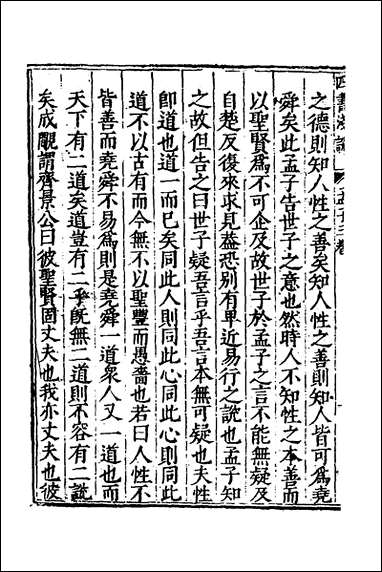 四書淺說
之德則知人性之善矣知人性之善則知人皆可爲堯
舜矣此孟子告世子之意也然時人不知性之本善而
以聖賢爲不可企及故世子於孟子之言不能無疑及
自楚反復來求見蓋恐別有卑近易行之說也孟子知
之故但告之曰世子疑吾言乎吾言本無可疑也夫性
卽道也道一而已矣同此人則同此心同此心則同此
道不以古有而今無不以聖豐而愚嗇也若曰人性不
皆善而堯舜不易爲則是堯舜一道衆人又一道也而
天下有二道矣道豈有二乎旣無二道則不容有二說
矣成覸謂齊景公曰彼聖賢固丈夫也我亦丈夫也彼